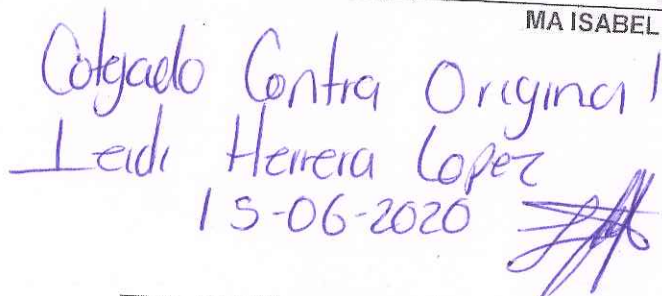 MA ISABEL
Cotejado Contra Original
Leidi Herrera Lopez
15-06-2020